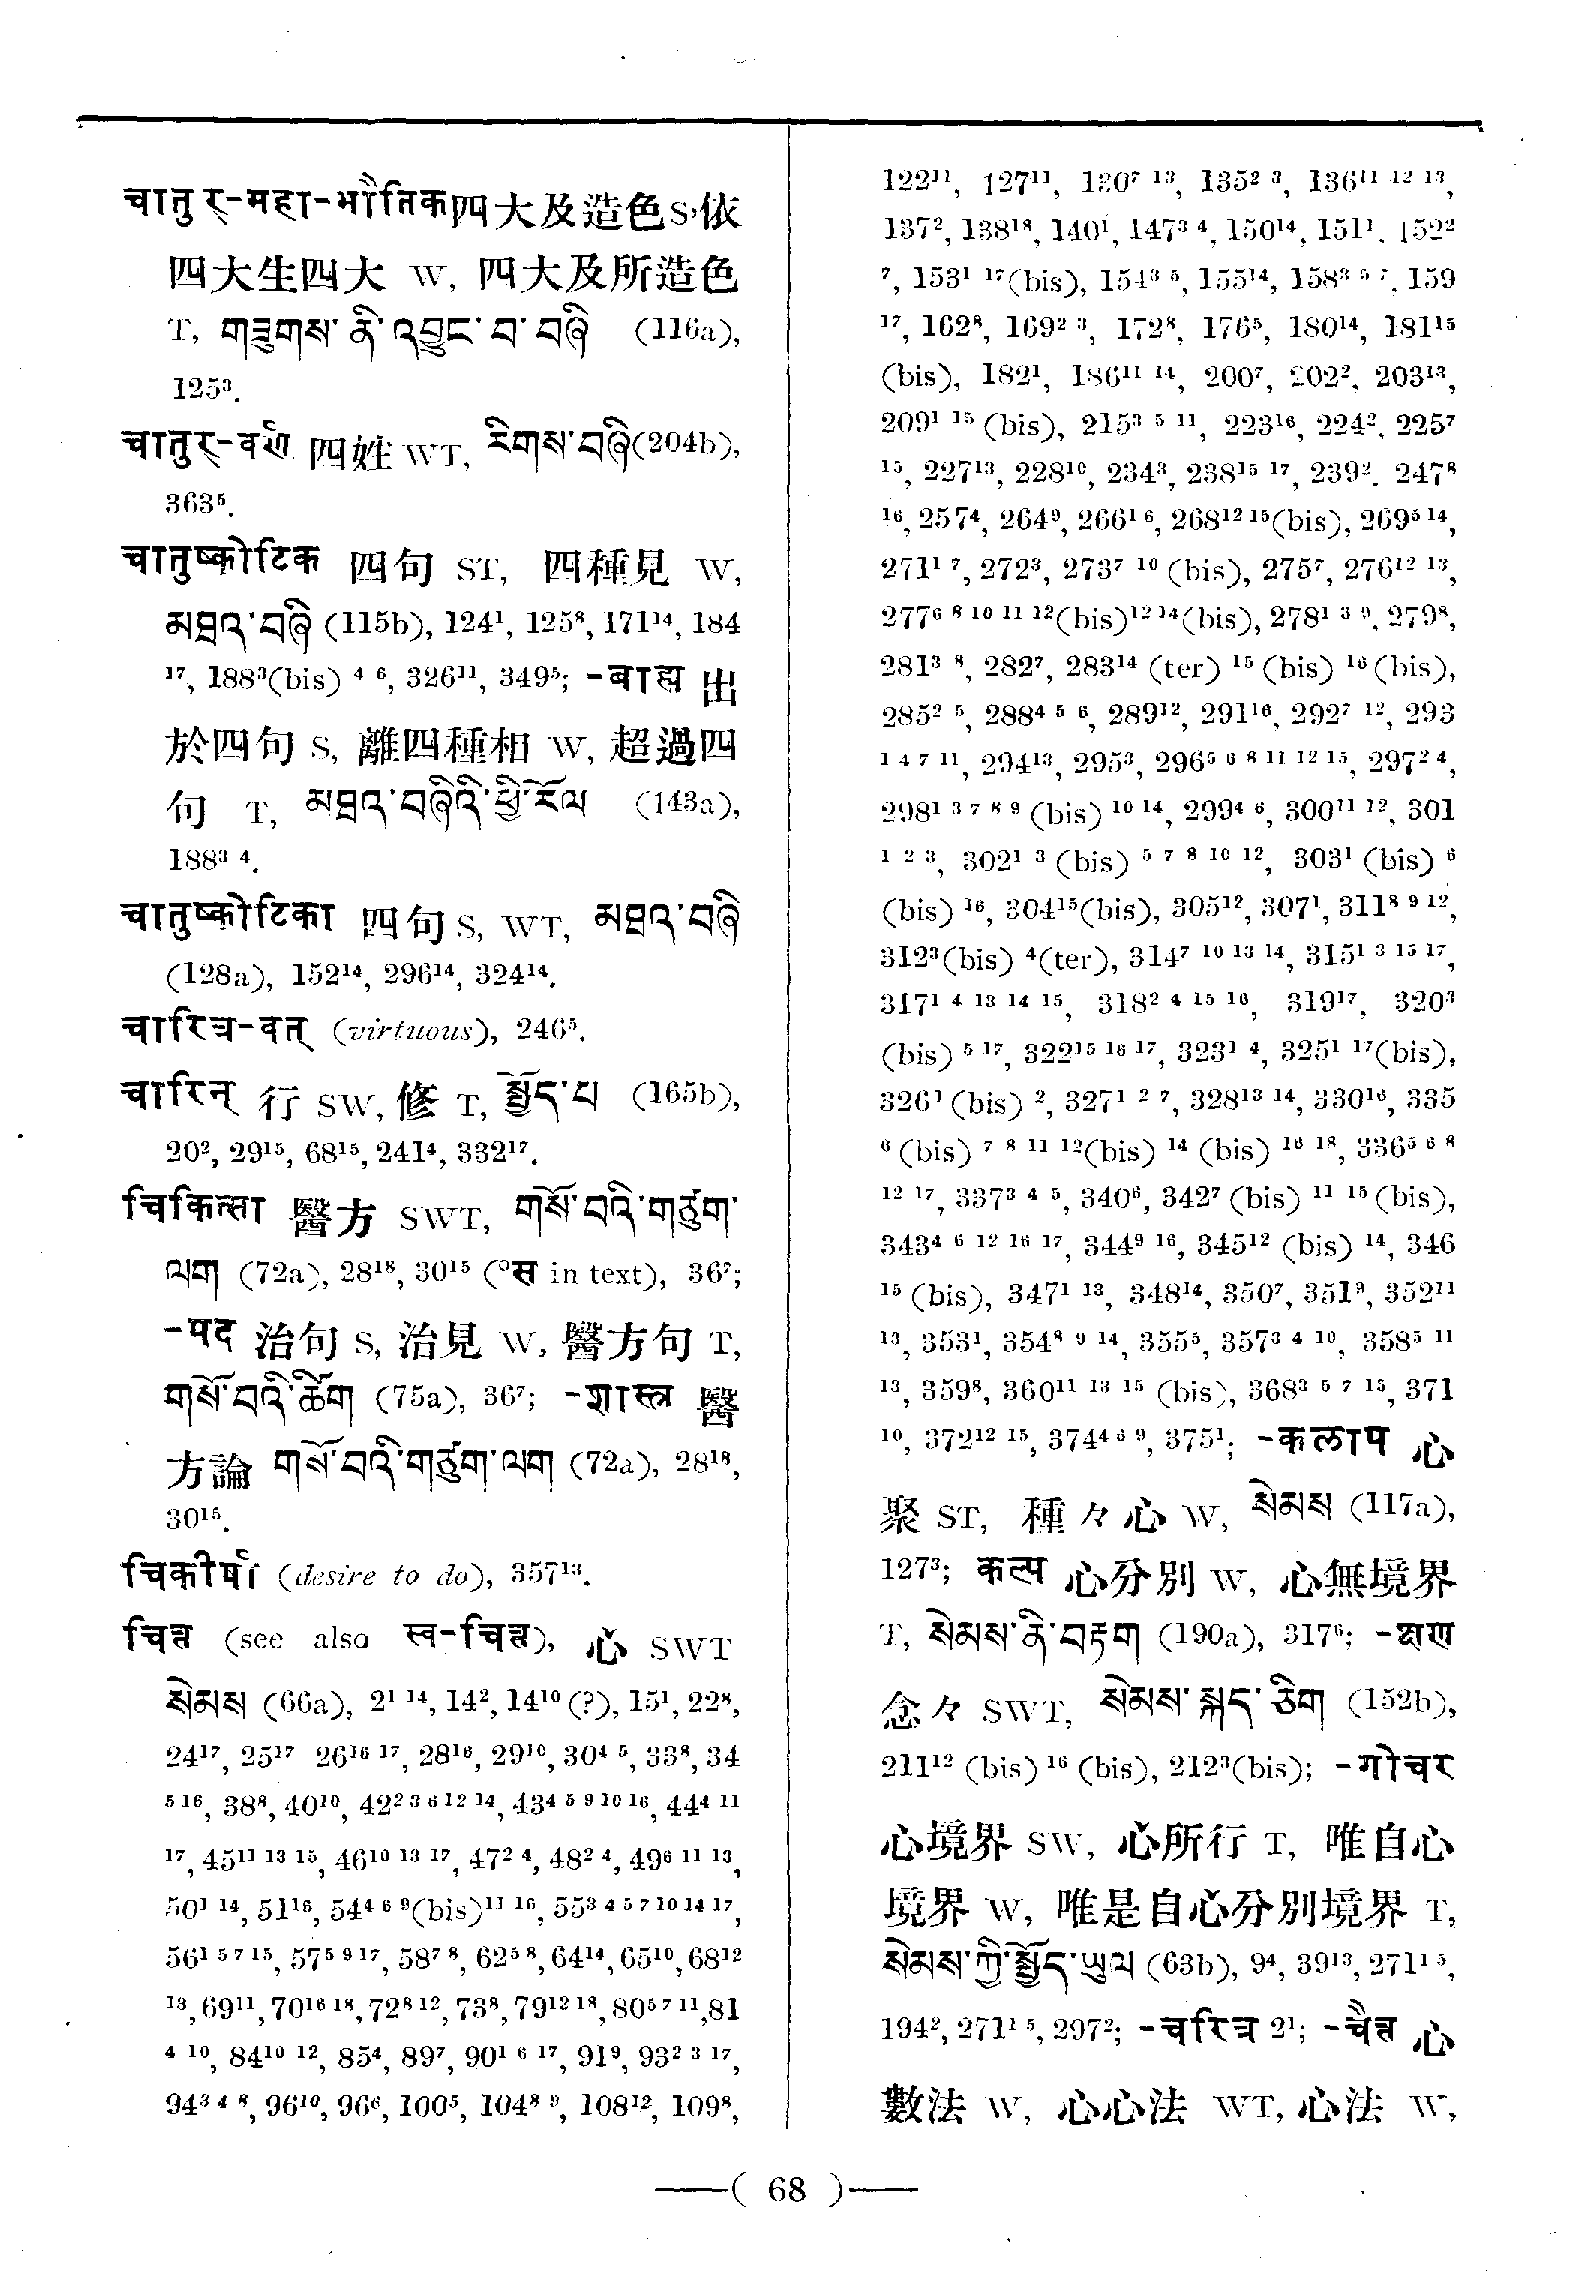 चातुर्-महा-भौतिक四大及造色S,依
四大生四大 W, 四大及所造色
T, གཟུགས་ནི་འབྱུང་བ་བཞི (116a),
125³.
चातुर्-वर्ण 四姓 WT, རིགས་བཞི(204b),
363⁵.
चातुष्कोटिक 四句 ST, 四種見 W,
མཐའ་བཞི (115b), 124¹, 125⁸, 171¹⁴, 184
¹⁷, 188³(bis) ⁴ ⁶, 326¹¹, 349⁵; -बाह्य 出
於四句 S, 離四種相 W, 超過四
句 T, མཐའ་བཞིའི་ཕྱི་རོལ (143a),
188³ ⁴.
चातुष्कोटिका 四句 S, WT, མཐའ་བཞི
(128a), 152¹⁴, 296¹⁴, 324¹⁴.
चारित्र-वत् (virtuous), 246⁵.
चारिन् 行 SW, 修 T, སྤྱོད་པ (165b),
20², 29¹⁵, 68¹⁵, 241⁴, 332¹⁷.
चिकित्सा 醫方 SWT, གསོ་བའི་གཙུག་
ལག (72a), 28¹⁸, 30¹⁵ (°स in text), 36⁷;
-पद 治句 S, 治見 W, 醫方句 T,
གསོ་བའི་ཚིག (75a), 36⁷; -शास्त्र 醫
方論 གསོ་བའི་གཙུག་ལག (72a), 28¹⁸,
30¹⁵.
चिकीर्षा (desire to do), 357¹³.
चित्त (see also स्व-चित्त), 心 SWT
སེམས (66a), 2¹ ¹⁴, 14², 14¹⁰ (?), 15¹, 22⁸,
24¹⁷, 25¹⁷ 26¹⁶ ¹⁷, 28¹⁶, 29¹⁰, 30⁴ ⁵, 33⁸, 34
⁵ ¹⁶, 38⁸, 40¹⁰, 42² ³ ⁶ ¹² ¹⁴, 43⁴ ⁵ ⁹ ¹⁰ ¹⁶, 44⁴ ¹¹
¹⁷, 45¹¹ ¹³ ¹⁵, 46¹⁰ ¹³ ¹⁷, 47² ⁴, 48² ⁴, 49⁶ ¹¹ ¹³,
50¹ ¹⁴, 51¹⁶, 54⁴ ⁶ ⁹(bis)¹¹ ¹⁶, 55³ ⁴ ⁵ ⁷ ¹⁰ ¹⁴ ¹⁷,
56¹ ⁵ ⁷ ¹⁵, 57⁵ ⁹ ¹⁷, 58⁷ ⁸, 62⁵ ⁸, 64¹⁴, 65¹⁰, 68¹²
¹³, 69¹¹, 70¹⁶ ¹⁸, 72⁸ ¹², 73⁸, 79¹² ¹⁸, 80⁵ ⁷ ¹¹, 81
⁴ ¹⁰, 84¹⁰ ¹², 85⁴, 89⁷, 90¹ ⁶ ¹⁷, 91⁹, 93² ³ ¹⁷,
94³ ⁴ ⁸, 96¹⁰, 96⁶, 100⁵, 104⁸ ⁹, 108¹², 109⁸,
122¹¹, 127¹¹, 130⁷ ¹³, 135² ³, 136¹¹ ¹² ¹³,
137², 138¹⁸, 140¹, 147³ ⁴, 150¹⁴, 151¹, 152²
⁷, 153¹ ¹⁷(bis), 154³ ⁵, 155¹⁴, 158³ ⁵ ⁷, 159
¹⁷, 162⁸, 169² ³, 172⁸, 176⁵, 180¹⁴, 181¹⁵
(bis), 182¹, 186¹¹ ¹⁴, 200⁷, 202², 203¹³,
209¹ ¹⁵ (bis), 215³ ⁵ ¹¹, 223¹⁶, 224², 225⁷
¹⁵, 227¹³, 228¹⁰, 234³, 238¹⁵ ¹⁷, 239², 247⁸
¹⁶, 257⁴, 264⁹, 266¹ ⁶, 268¹² ¹⁵(bis), 269⁵ ¹⁴,
271¹ ⁷, 272³, 273⁷ ¹⁰ (bis), 275⁷, 276¹² ¹³,
277⁶ ⁸ ¹⁰ ¹¹ ¹²(bis)¹² ¹⁴(bis), 278¹ ³ ⁹, 279⁸,
281³ ⁸, 282⁷, 283¹⁴ (ter) ¹⁵ (bis) ¹⁶ (bis),
285² ⁵, 288⁴ ⁵ ⁶, 289¹², 291¹⁶, 292⁷ ¹², 293
¹ ⁴ ⁷ ¹¹, 294¹³, 295³, 296⁵ ⁶ ⁸ ¹¹ ¹² ¹⁵, 297² ⁴,
298¹ ³ ⁷ ⁸ ⁹ (bis) ¹⁰ ¹⁴, 299⁴ ⁶, 300¹¹ ¹², 301
¹ ² ³, 302¹ ³ (bis) ⁵ ⁷ ⁸ ¹⁰ ¹², 303¹ (bis) ⁶
(bis) ¹⁶, 304¹⁵(bis), 305¹², 307¹, 311⁸ ⁹ ¹²,
312³(bis) ⁴(ter), 314⁷ ¹⁰ ¹³ ¹⁴, 315¹ ³ ¹⁵ ¹⁷,
317¹ ⁴ ¹³ ¹⁴ ¹⁵, 318² ⁴ ¹⁵ ¹⁶, 319¹⁷, 320³
(bis) ⁵ ¹⁷, 322¹⁵ ¹⁶ ¹⁷, 323¹ ⁴, 325¹ ¹⁷(bis),
326¹ (bis) ², 327¹ ² ⁷, 328¹³ ¹⁴, 330¹⁶, 335
⁶ (bis) ⁷ ⁸ ¹¹ ¹²(bis) ¹⁴ (bis) ¹⁶ ¹⁸, 336⁵ ⁶ ⁸
¹² ¹⁷, 337³ ⁴ ⁵, 340⁶, 342⁷ (bis) ¹¹ ¹⁵ (bis),
343⁴ ⁶ ¹² ¹⁶ ¹⁷, 344⁹ ¹⁶, 345¹² (bis) ¹⁴, 346
¹⁵ (bis), 347¹ ¹³, 348¹⁴, 350⁷, 351⁹, 352¹¹
¹³, 353¹, 354⁸ ⁹ ¹⁴, 355⁵, 357³ ⁴ ¹⁰, 358⁵ ¹¹
¹³, 359⁸, 360¹¹ ¹³ ¹⁵ (bis), 368³ ⁵ ⁷ ¹⁵, 371
¹⁰, 372¹² ¹⁵, 374⁴ ⁶ ⁹, 375¹; -कलाप 心
聚 ST, 種々心 W, སེམས (117a),
127³; कल्प 心分別 W, 心無境界
T, སེམས་ནི་བརྟག (190a), 317⁶; -क्षण
念々 SWT, སེམས་སྐད་ཅིག (152b),
211¹² (bis) ¹⁶ (bis), 212³(bis); -गोचर
心境界 SW, 心所行 T, 唯自心
境界 W, 唯是自心分別境界 T,
སེམས་ཀྱི་སྤྱོད་ཡུལ (63b), 9⁴, 39¹³, 271¹ ⁵,
194², 271¹ ⁵, 297²; -चरित्र 2¹; -चैत्त 心
數法 W, 心心法 WT, 心法 W,
—( 68 )—